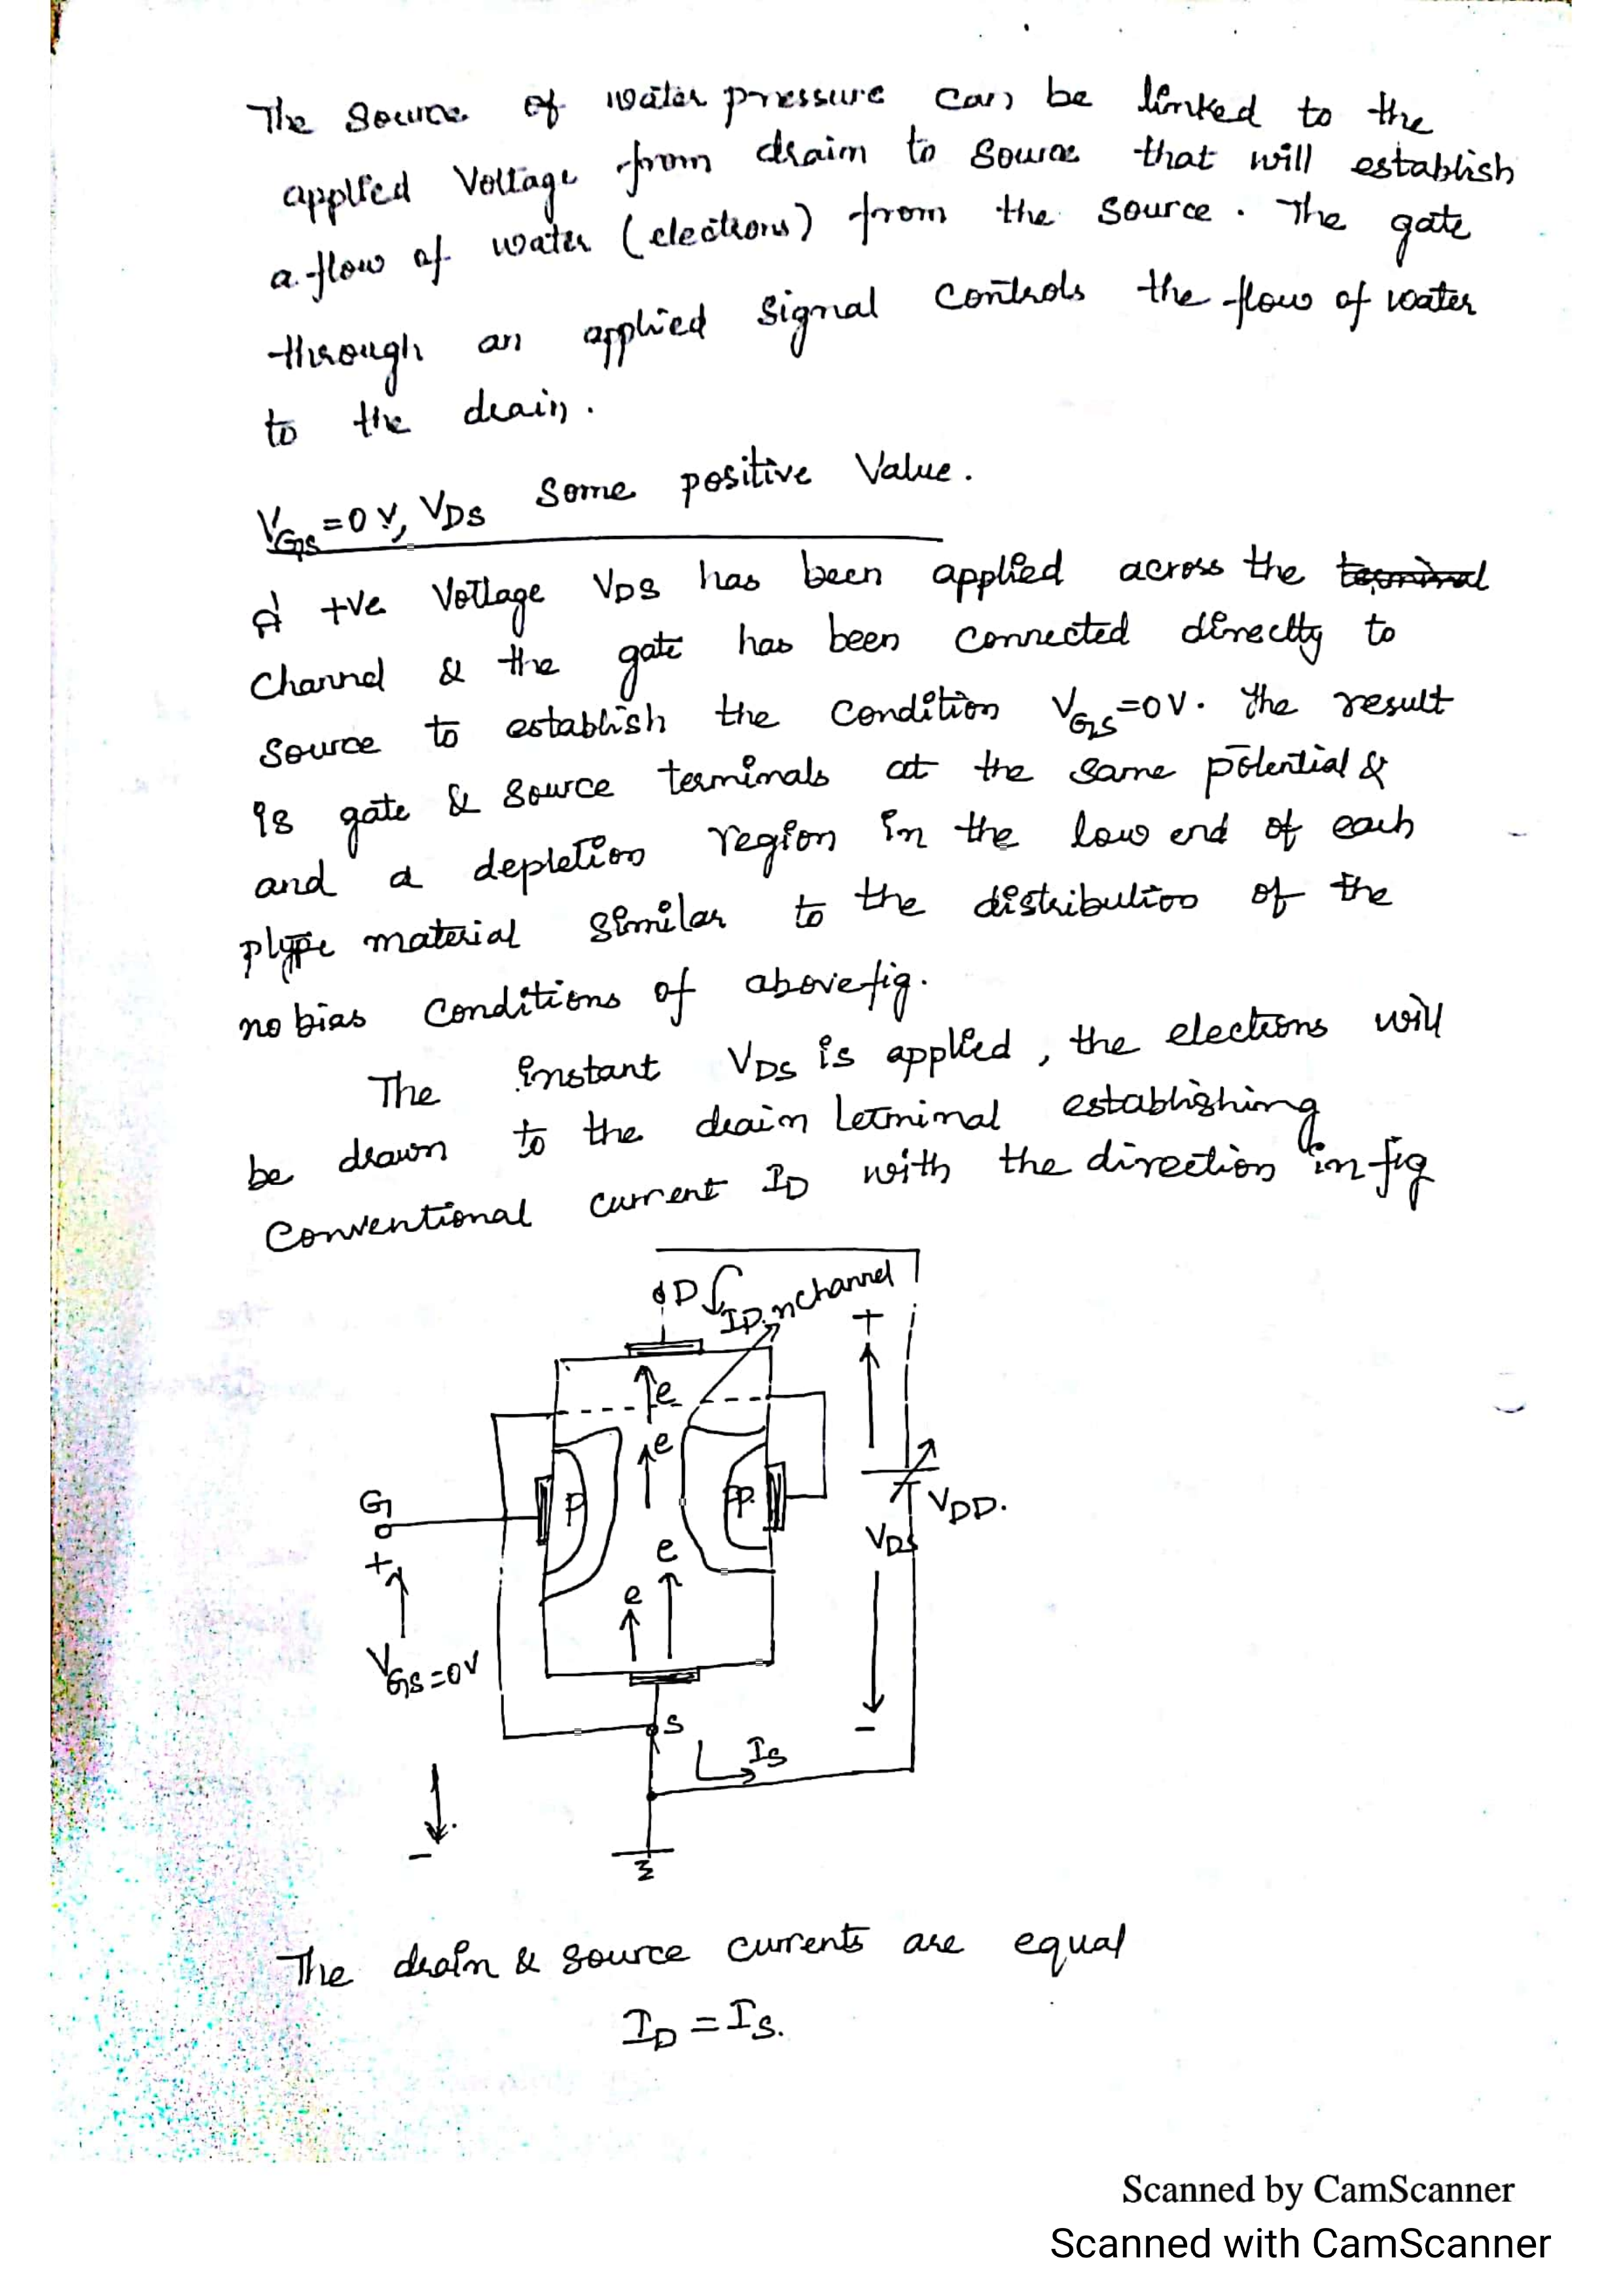 The Source of water pressure can be linked to the
applied Voltage from drain to source that will establish
a flow of water (electrons) from the source. The gate
through an applied signal controls the flow of water
to the drain.
VGS=0V, VDS Some positive Value.
A +ve Voltage VDS has been applied across the terminal
Channel & the gate has been connected directly to
source to establish the condition VGS=0V. The result
is gate & source terminals at the same potential &
and a depletion region in the low end of each
ptype material similar to the distribution of the
no bias conditions of above fig.
The instant VDS is applied, the electrons will
be drawn to the drain terminal establishing
Conventional current ID with the direction in fig
D ID n channel
+
e
e
G P P VDD.
VDS
+
e
e
VGS=0V
S
-
IS
-
The drain & source currents are equal
ID = IS.
Scanned by CamScanner
Scanned with CamScanner